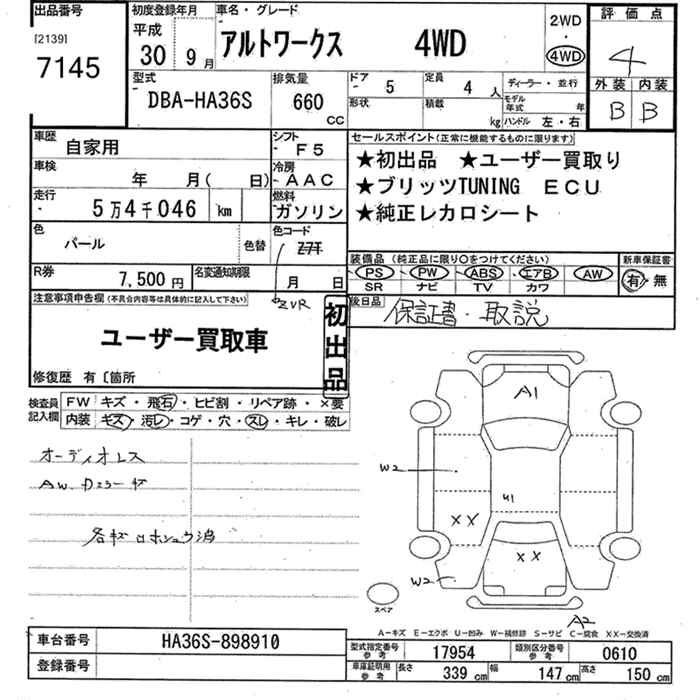 出品番号
[2139]
7145
初度登録年月
平成
30 9月
車名・グレード
アルトワークス 4WD
2WD
・
4WD
評価点
4
外装 内装
B B
型式
DBA-HA36S
排気量
660
CC
ドア
5
定員
4 人
形状
積載
kg
ディーラー・並行
モデル年式 年
ハンドル 左・右
車歴
自家用
シフト
F5
車検
年 月( 日)
冷房
AAC
走行
5万4千046 km
燃料
ガソリン
色
パール
色替
色コード
ZVR
R券
7,500円
名変通知期限
月 日
セールスポイント(正常に機能するものに限ります)
★初出品 ★ユーザー買取り
★ブリッツTUNING ECU
★純正レカロシート
装備品(純正品に限り〇をつけてください)
PS ・ PW ・ ABS ・ エアB ・ AW
SR ナビ TV カワ
新車保証書
有・無
後日品
保証書・取説
注意事項申告欄(不具合内容等は具体的に記入して下さい)
ユーザー買取車
初出品
修復歴 有〔箇所
検査員記入欄
FW キズ・飛石・ヒビ割・リペア跡・×要
内装 キズ・汚レ・コゲ・穴・スレ・キレ・破レ
オーディオレス
A1
W2
U1
XX
XX
W2
A2
スペア
A-キズ E-エクボ U-凹み W-補修跡 S-サビ C-腐食 XX-交換済
車台番号
HA36S-898910
登録番号
型式指定番号
参考
17954
類別区分番号
参考
0610
車庫証明用
参考
長さ 339 cm
幅 147 cm
高さ 150 cm